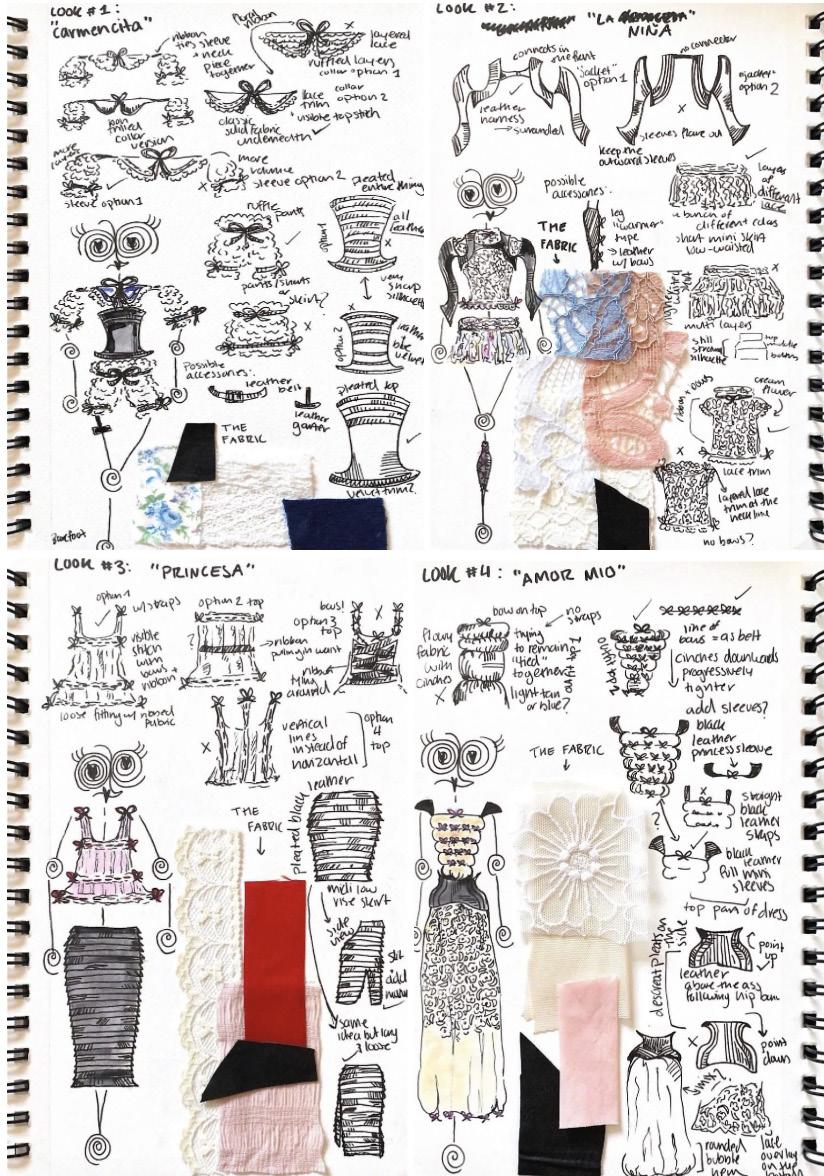 LOOK #1:
"Carmencita"
ribbon
ties sleeve
+ neck
piece
together
floral
ribbon
layered
lace
ruffled layers
collar option 1
collar
option 2
lace
trim
visible topstitch
classic
solid fabric
underneath
collar
version
more
volume
sleeve option 2
sleeve option 1
pleated
entire thing
ruffle
pants
option 1
all
leather
pants/shorts
skirt?
very
sharp
silhouette
option 2
Possible
accessories:
leather
belt
leather
garter
pleated top
THE
FABRIC
velvet trim?
Barefoot
LOOK #2:
"LA
NIÑA"
connects in
the front
"jacket"
option 1
leather
harness
no connector
"jacket"
option 2
sleeves flare out
keep the
outward sleeves
possible
accessories:
leg
"warmer"
type
→ leather
w/ bows
THE
FABRIC
layers
of
different
lace
a bunch of
different colors
short mini skirt
low-waisted
multi layers
still
strong
silhouette
ribbon + bows
cream
flower
lace trim
layered lace
trim at the
neckline
no bows?
LOOK #3:
"PRINCESA"
option 1
w/ straps
visible
stitch
with
bows +
ribbon
loose fitting w/
fabric
option 2 top
?
ribbon
bows!
option 3
top
ribbon
tying
around
vertical
lines
instead of
horizontal
option
4
top
THE
FABRIC
pleated black
leather
midi low
rise skirt
side
view
slit
same
idea but
loose
LOOK #4:
"AMOR MIO"
bow on top
no
straps
flowy
fabric
with
cinches
trying
to remain
"tied"
together
light tan
or blue?
line of
bows = as belt
cinches downwards
progressively
tighter
add sleeves?
black
leather
princess sleeve
THE FABRIC
straight
black
leather
straps
?
black
leather
full mini
sleeves
top part of dress
point
up
leather
above the ass
following hip bone
point
down
rounded
bubble
hem
lace
overlay
on the
bottom